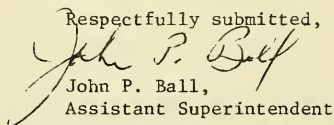 Respectfully submitted,
John P. Ball
John P. Ball,
Assistant Superintendent